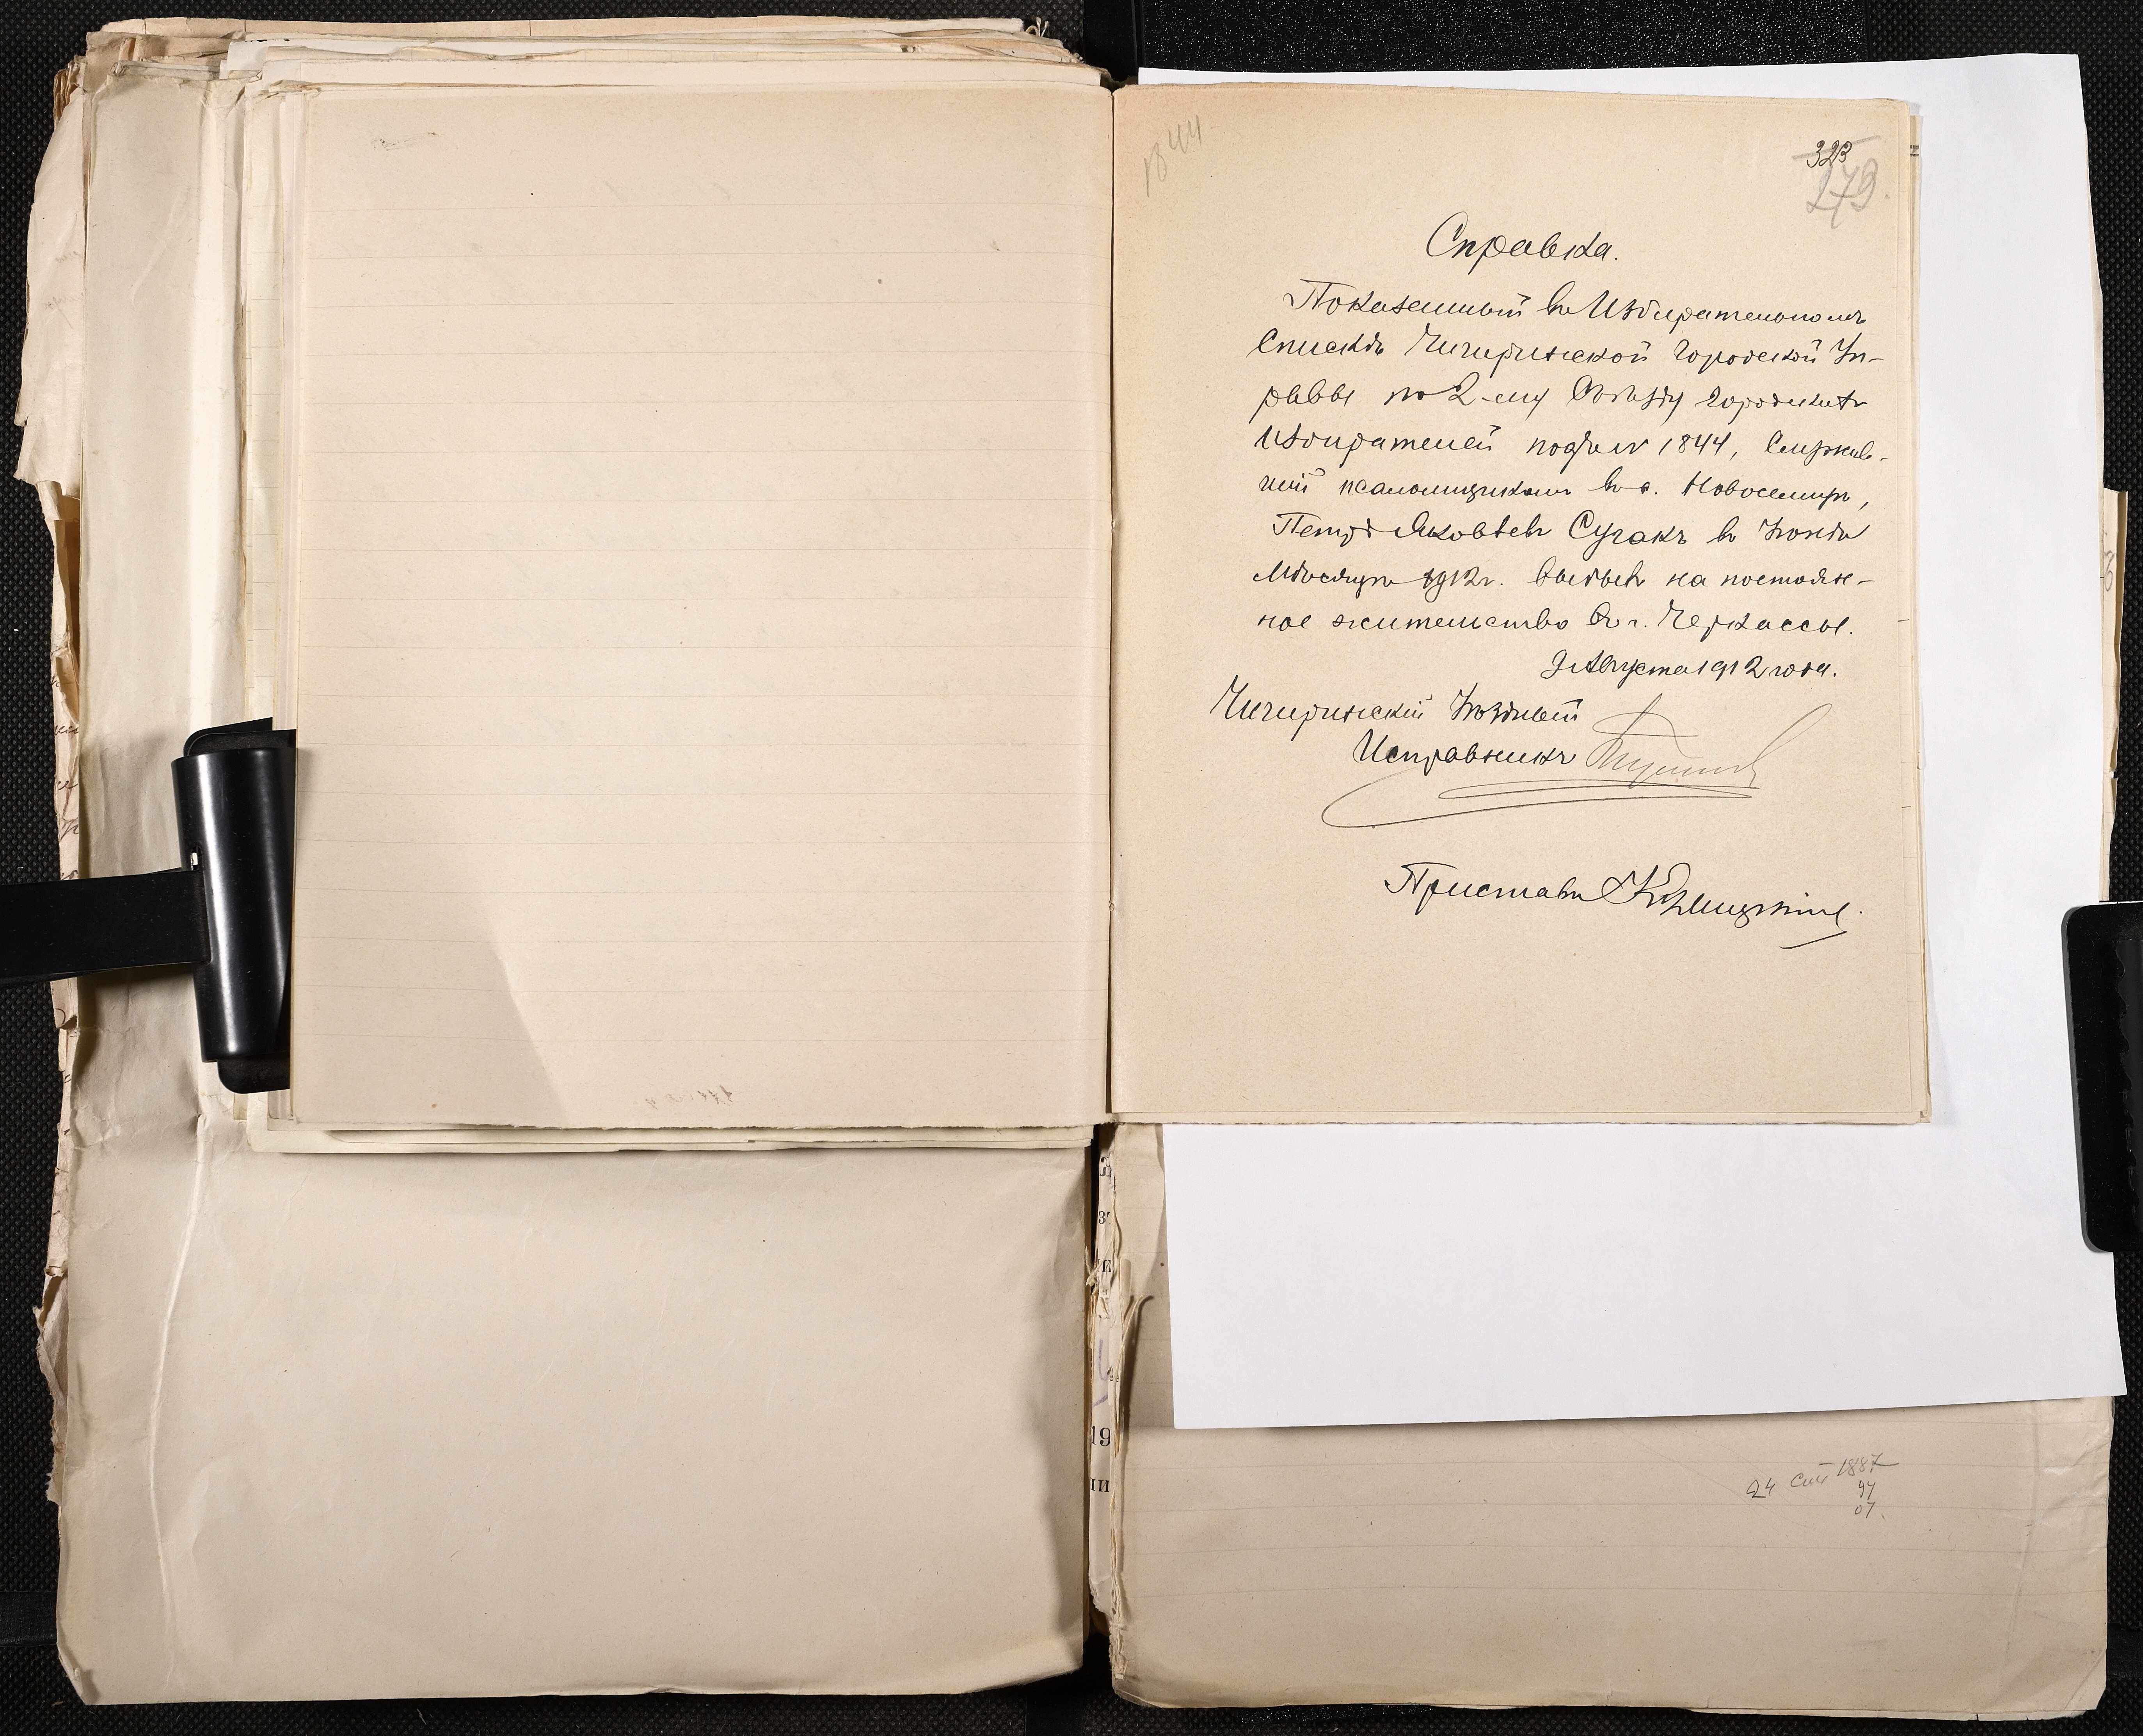 1844
323
279.
Справка.
Показанный въ Избирательномъ
Спискѣ Чигиринской Городской Уп-
равы по 2-му Съѣзду городскихъ
избирателей подъ № 1844, Служив-
шій псаломщикомъ въ с. Новоселицѣ,
Петръ Яковлевъ Сугакъ въ Іюнѣ
Мѣсяцѣ 1912 г. выѣхалъ на постоян-
ное жительство въ г. Черкассы.
9 Августа 1912 года.
Чигиринскій Уѣздный
Исправникъ
Приставъ
19
24 1887
97
07.